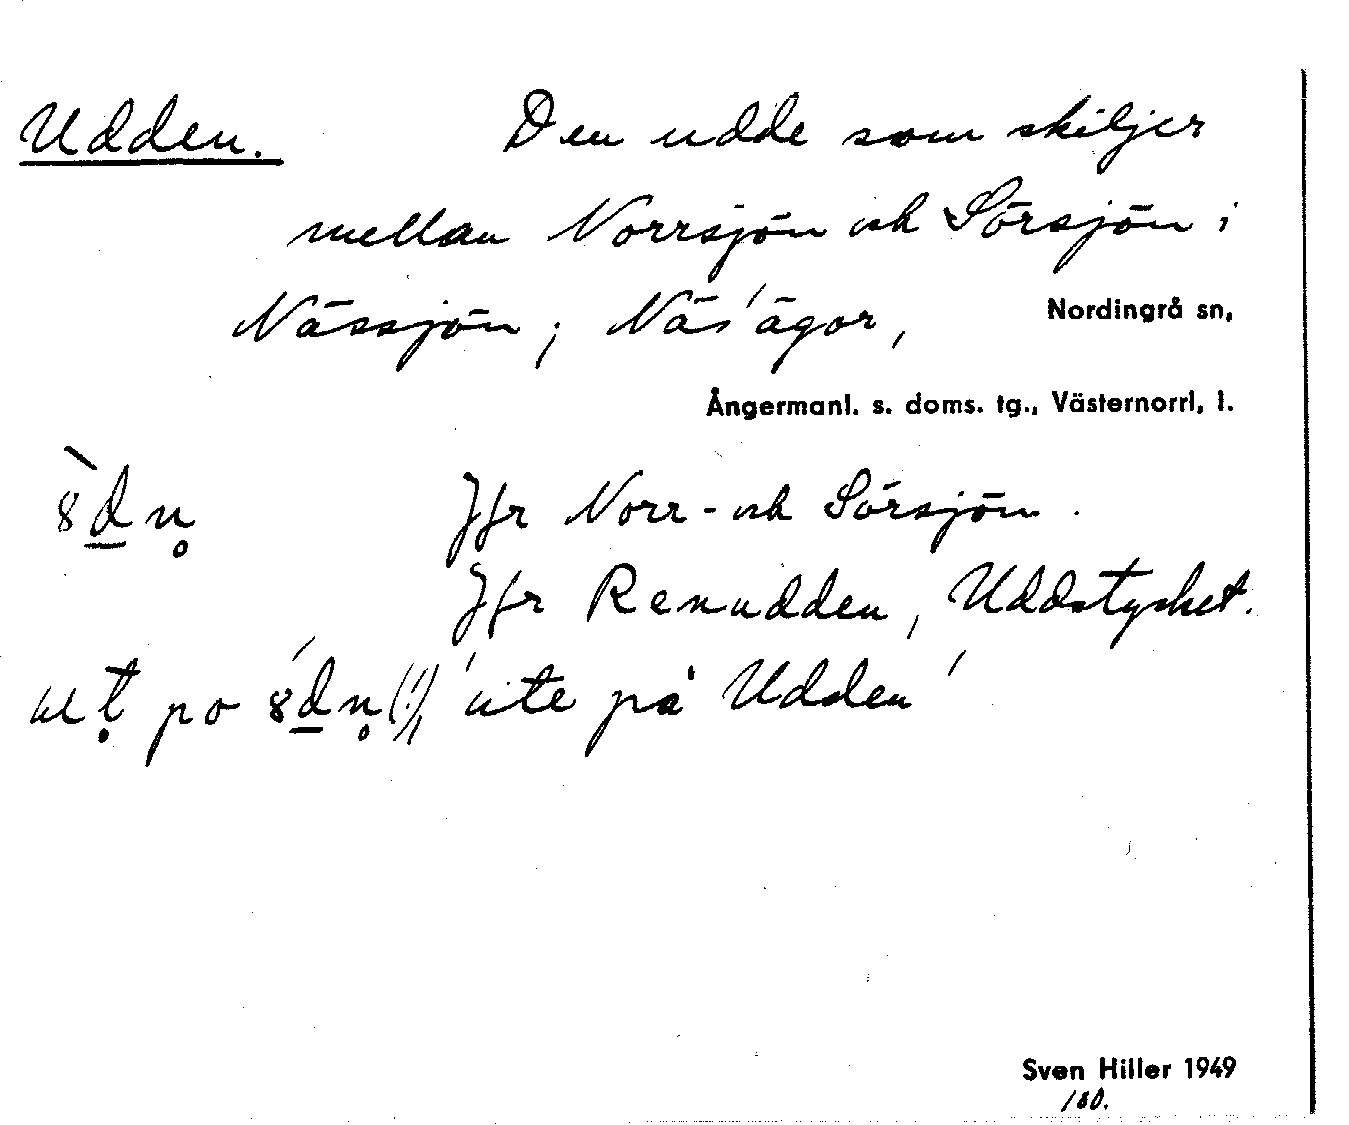 Udden. Den udde som skiljer
mellan Norrsjön och Sörsjön i
Nässjön; Näs' ägor, Nordingrå sn,
Ångermanl. s. doms. tg., Västernorrl. l.
Jfr Norr- och Sörsjön.
Jfr Renudden, Uddstycket.
po (!), 'ute på Udden'
Sven Hiller 1949
180.